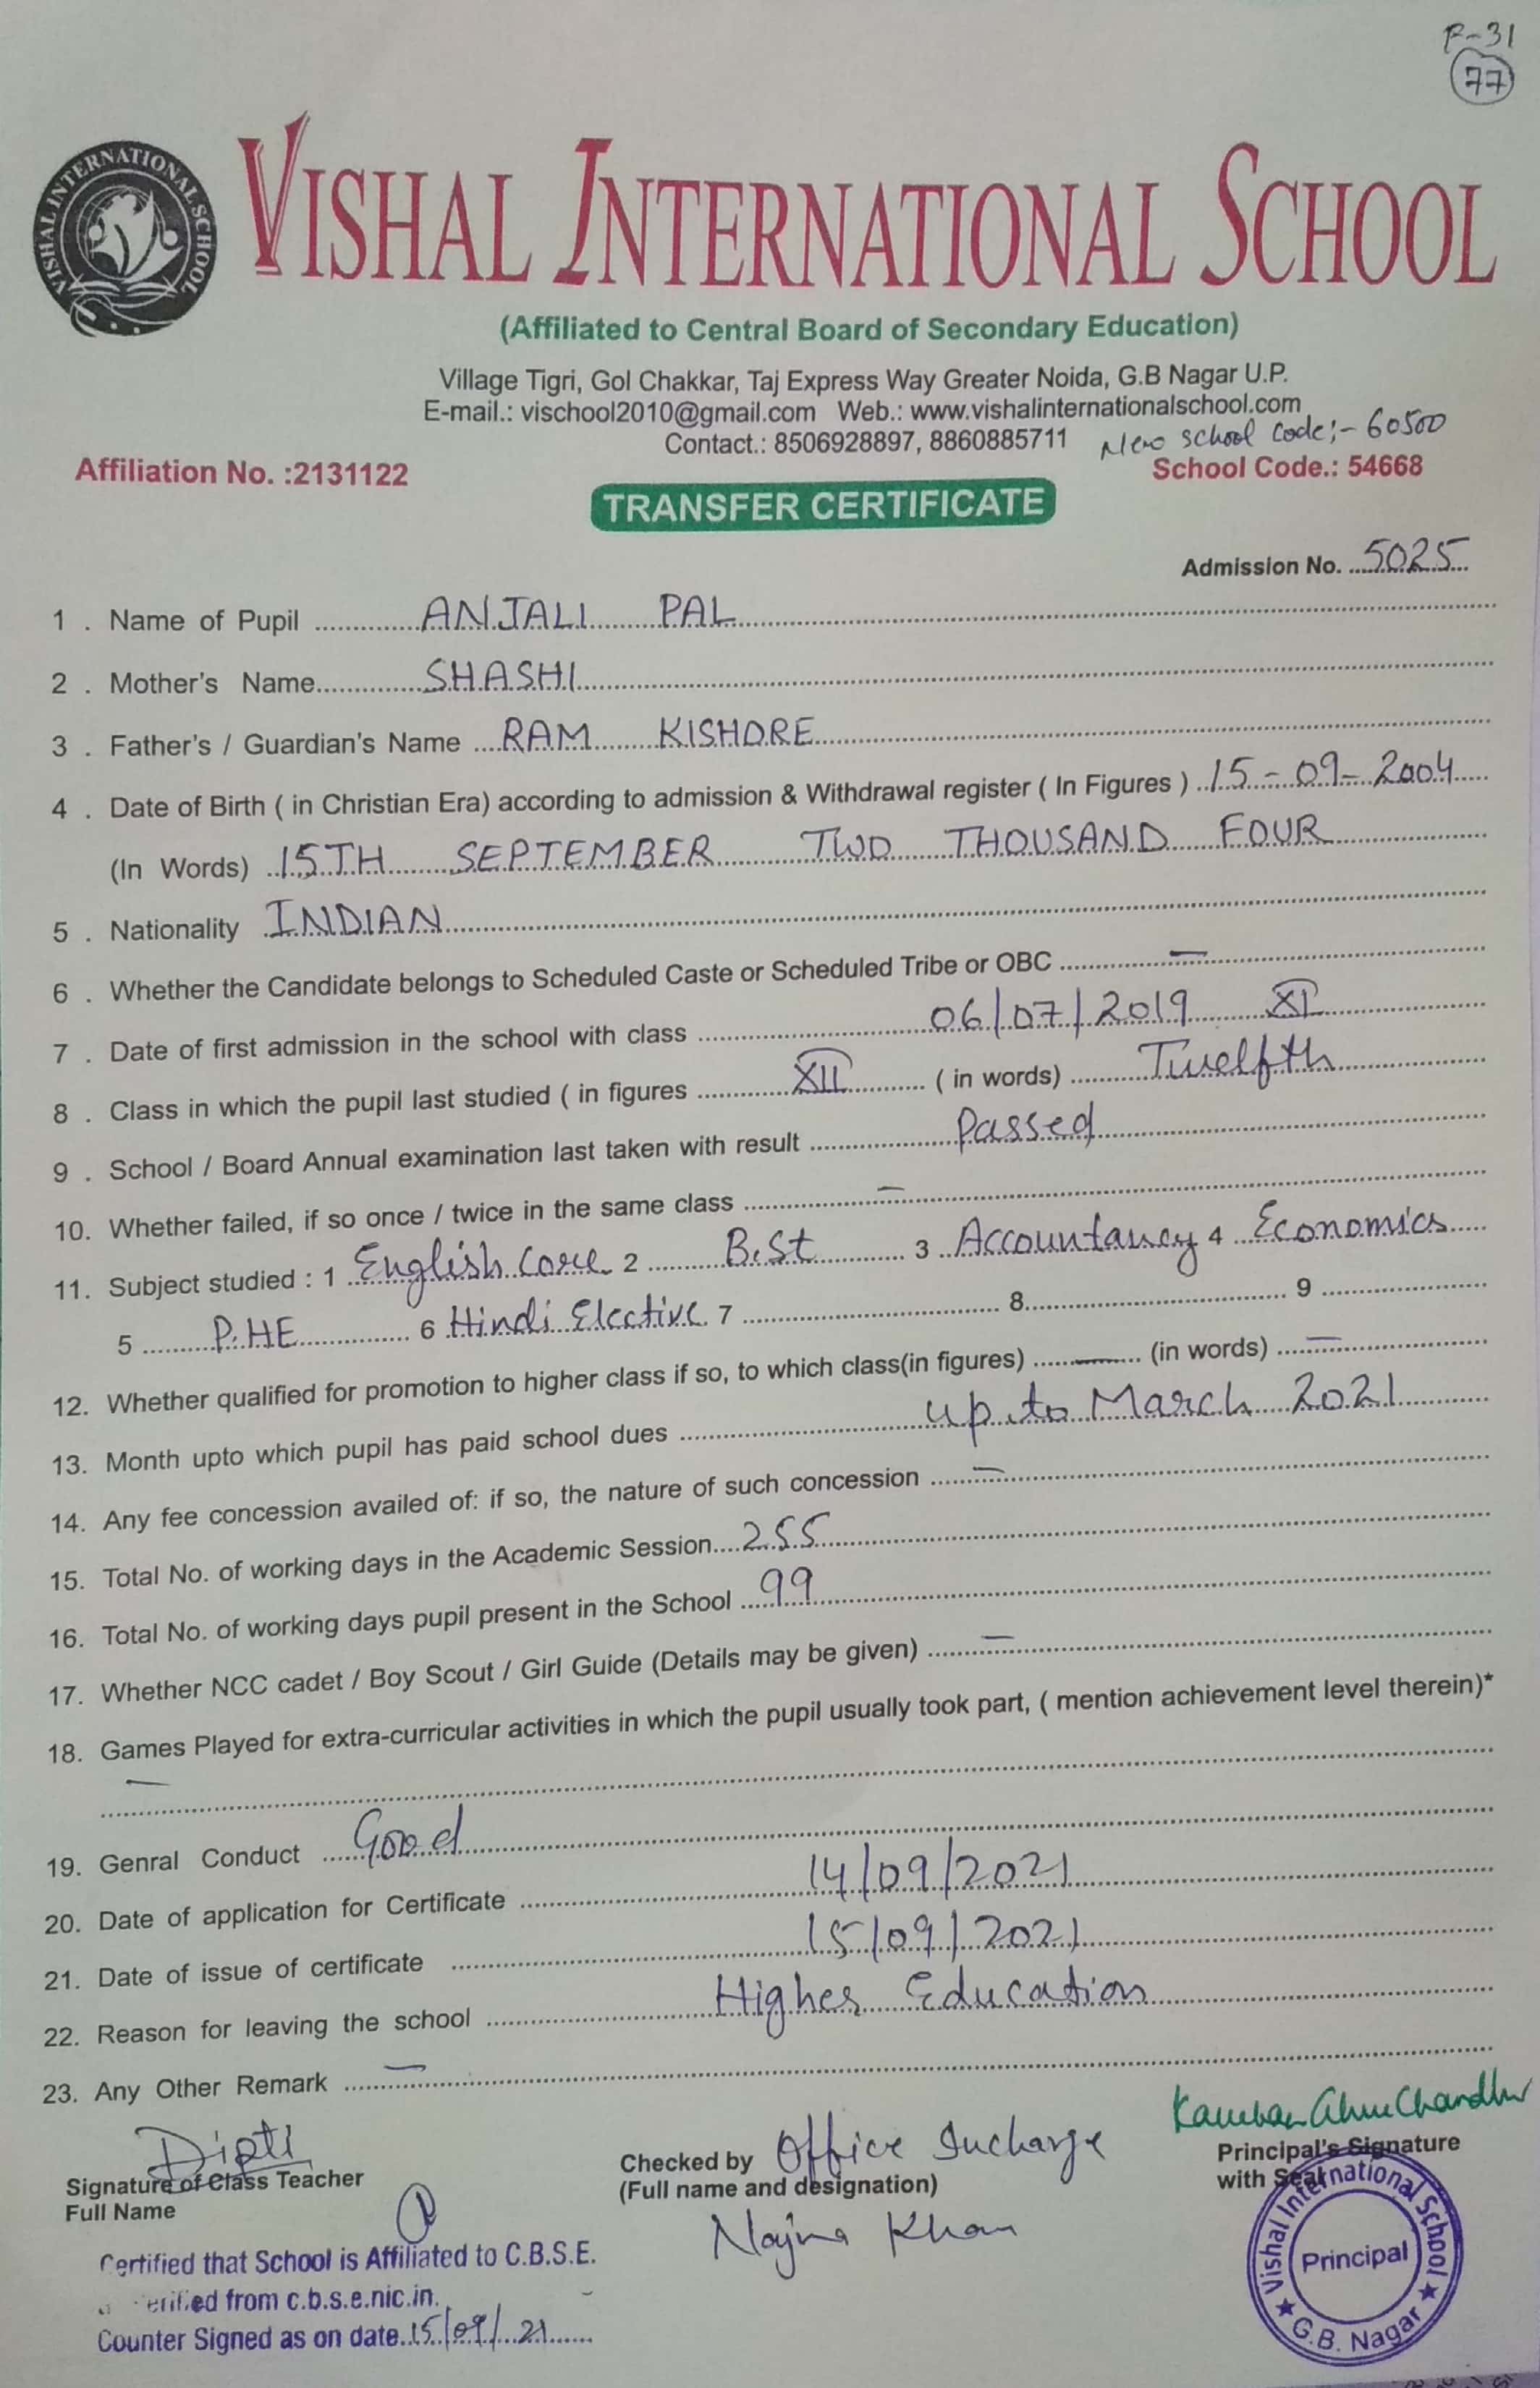 R-31
77
VISHAL INTERNATIONAL SCHOOL
VISHAL INTERNATIONAL SCHOOL
(Affiliated to Central Board of Secondary Education)
Village Tigri, Gol Chakkar, Taj Express Way Greater Noida, G.B Nagar U.P.
E-mail.: vischool2010@gmail.com Web.: www.vishalinternationalschool.com
Contact.: 8506928897, 8860885711 New school code:- 60500
Affiliation No. :2131122 School Code.: 54668
TRANSFER CERTIFICATE
Admission No. 5025
1 . Name of Pupil ANJALI PAL
2 . Mother's Name SHASHI
3 . Father's / Guardian's Name RAM KISHORE
4 . Date of Birth ( in Christian Era) according to admission & Withdrawal register ( In Figures ) 15-09-2004
(In Words) 15TH SEPTEMBER TWO THOUSAND FOUR
5 . Nationality INDIAN
6 . Whether the Candidate belongs to Scheduled Caste or Scheduled Tribe or OBC —
7 . Date of first admission in the school with class 06/07/2019 XI
8 . Class in which the pupil last studied ( in figures XII ( in words) Twelfth
9 . School / Board Annual examination last taken with result Passed
10. Whether failed, if so once / twice in the same class —
11. Subject studied : 1 English Core 2 B.St 3 Accountancy 4 Economics
5 P.HE 6 Hindi Elective 7 8 9
12. Whether qualified for promotion to higher class if so, to which class(in figures) — (in words) —
13. Month upto which pupil has paid school dues up to March 2021
14. Any fee concession availed of: if so, the nature of such concession —
15. Total No. of working days in the Academic Session 255
16. Total No. of working days pupil present in the School 99
17. Whether NCC cadet / Boy Scout / Girl Guide (Details may be given) —
18. Games Played for extra-curricular activities in which the pupil usually took part, ( mention achievement level therein)*
—
19. Genral Conduct Good
20. Date of application for Certificate 14/09/2021
21. Date of issue of certificate 15/09/2021
22. Reason for leaving the school Higher Education
23. Any Other Remark —
Dipti
Signature of Class Teacher
Full Name
Checked by Office Incharge
(Full name and designation)
Najma Khan
Principal's Signature
with Seal
Vishal International School
Principal
★ G.B. Nagar ★
Certified that School is Affiliated to C.B.S.E.
erified from c.b.s.e.nic.in.
Counter Signed as on date 15/09/21